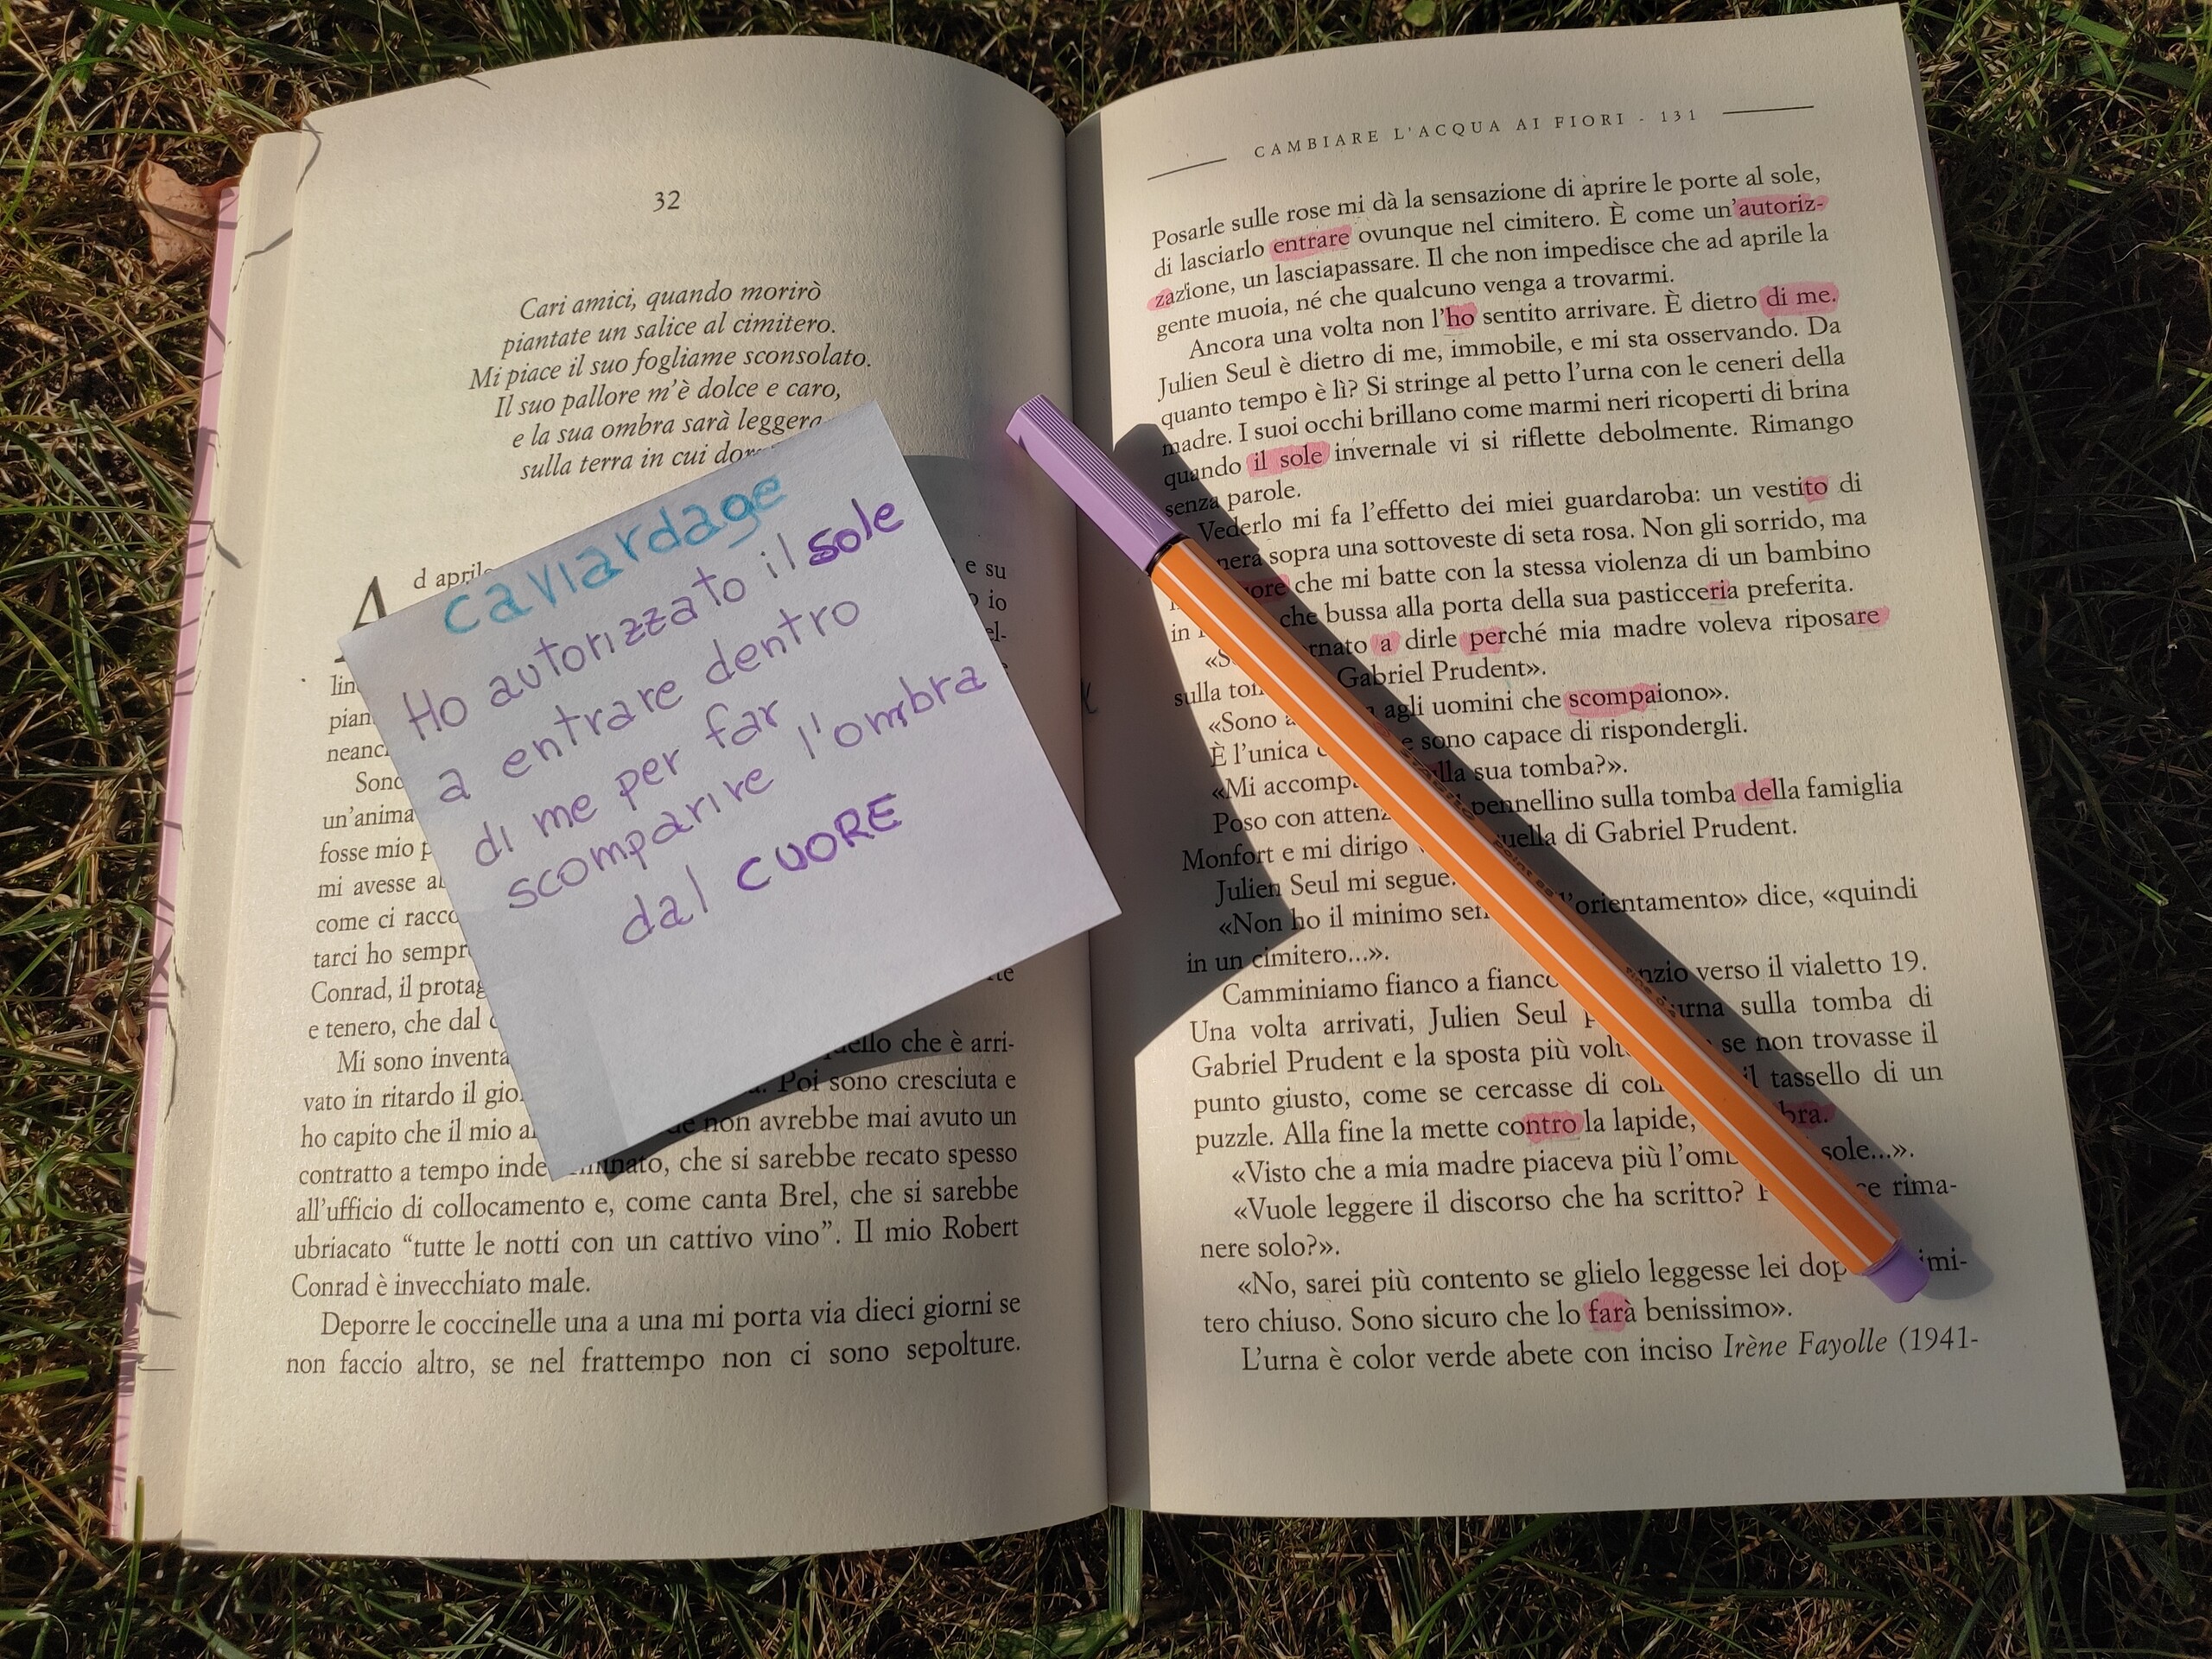 32
Cari amici, quando morirò
piantate un salice al cimitero.
Mi piace il suo fogliame sconsolato.
Il suo pallore m'è dolce e caro,
e la sua ombra sarà leggera
sulla terra in cui
caviardage
Ho autorizzato il sole
a entrare dentro
di me per far
scomparire l'ombra
dal CUORE
d aprile e su
io
Sono
un'anima
fosse mio
mi avesse
come ci
tarci ho
Conrad, il
e tenero, che dal
Mi sono che è arri-
vato in ritardo il Poi sono cresciuta e
ho capito che il mio non avrebbe mai avuto un
contratto a tempo che si sarebbe recato spesso
all'ufficio di collocamento e, come canta Brel, che si sarebbe
ubriacato “tutte le notti con un cattivo vino”. Il mio Robert
Conrad è invecchiato male.
Deporre le coccinelle una a una mi porta via dieci giorni se
non faccio altro, se nel frattempo non ci sono sepolture.
CAMBIARE L'ACQUA AI FIORI - 131
Posarle sulle rose mi dà la sensazione di aprire le porte al sole,
di lasciarlo entrare ovunque nel cimitero. È come un'autoriz-
zazione, un lasciapassare. Il che non impedisce che ad aprile la
gente muoia, né che qualcuno venga a trovarmi.
Ancora una volta non l'ho sentito arrivare. È dietro di me.
Julien Seul è dietro di me, immobile, e mi sta osservando. Da
quanto tempo è lì? Si stringe al petto l'urna con le ceneri della
madre. I suoi occhi brillano come marmi neri ricoperti di brina
quando il sole invernale vi si riflette debolmente. Rimango
senza parole.
Vederlo mi fa l'effetto dei miei guardaroba: un vestito di
nera sopra una sottoveste di seta rosa. Non gli sorrido, ma
che mi batte con la stessa violenza di un bambino
in che bussa alla porta della sua pasticceria preferita.
a dirle perché mia madre voleva riposare
sulla Gabriel Prudent».
«Sono agli uomini che scompaiono».
È l'unica sono capace di rispondergli.
«Mi sua tomba?».
Poso con pennellino sulla tomba della famiglia
Monfort e mi dirigo di Gabriel Prudent.
Julien Seul mi segue.
«Non ho il minimo l'orientamento» dice, «quindi
in un cimitero...».
Camminiamo fianco a fianco verso il vialetto 19.
Una volta arrivati, Julien Seul sulla tomba di
Gabriel Prudent e la sposta più se non trovasse il
punto giusto, come se cercasse di il tassello di un
puzzle. Alla fine la mette contro la lapide,
«Visto che a mia madre piaceva più sole...».
«Vuole leggere il discorso che ha scritto? rima-
nere solo?».
«No, sarei più contento se glielo leggesse lei
tero chiuso. Sono sicuro che lo farà benissimo».
L'urna è color verde abete con inciso Irène Fayolle (1941-